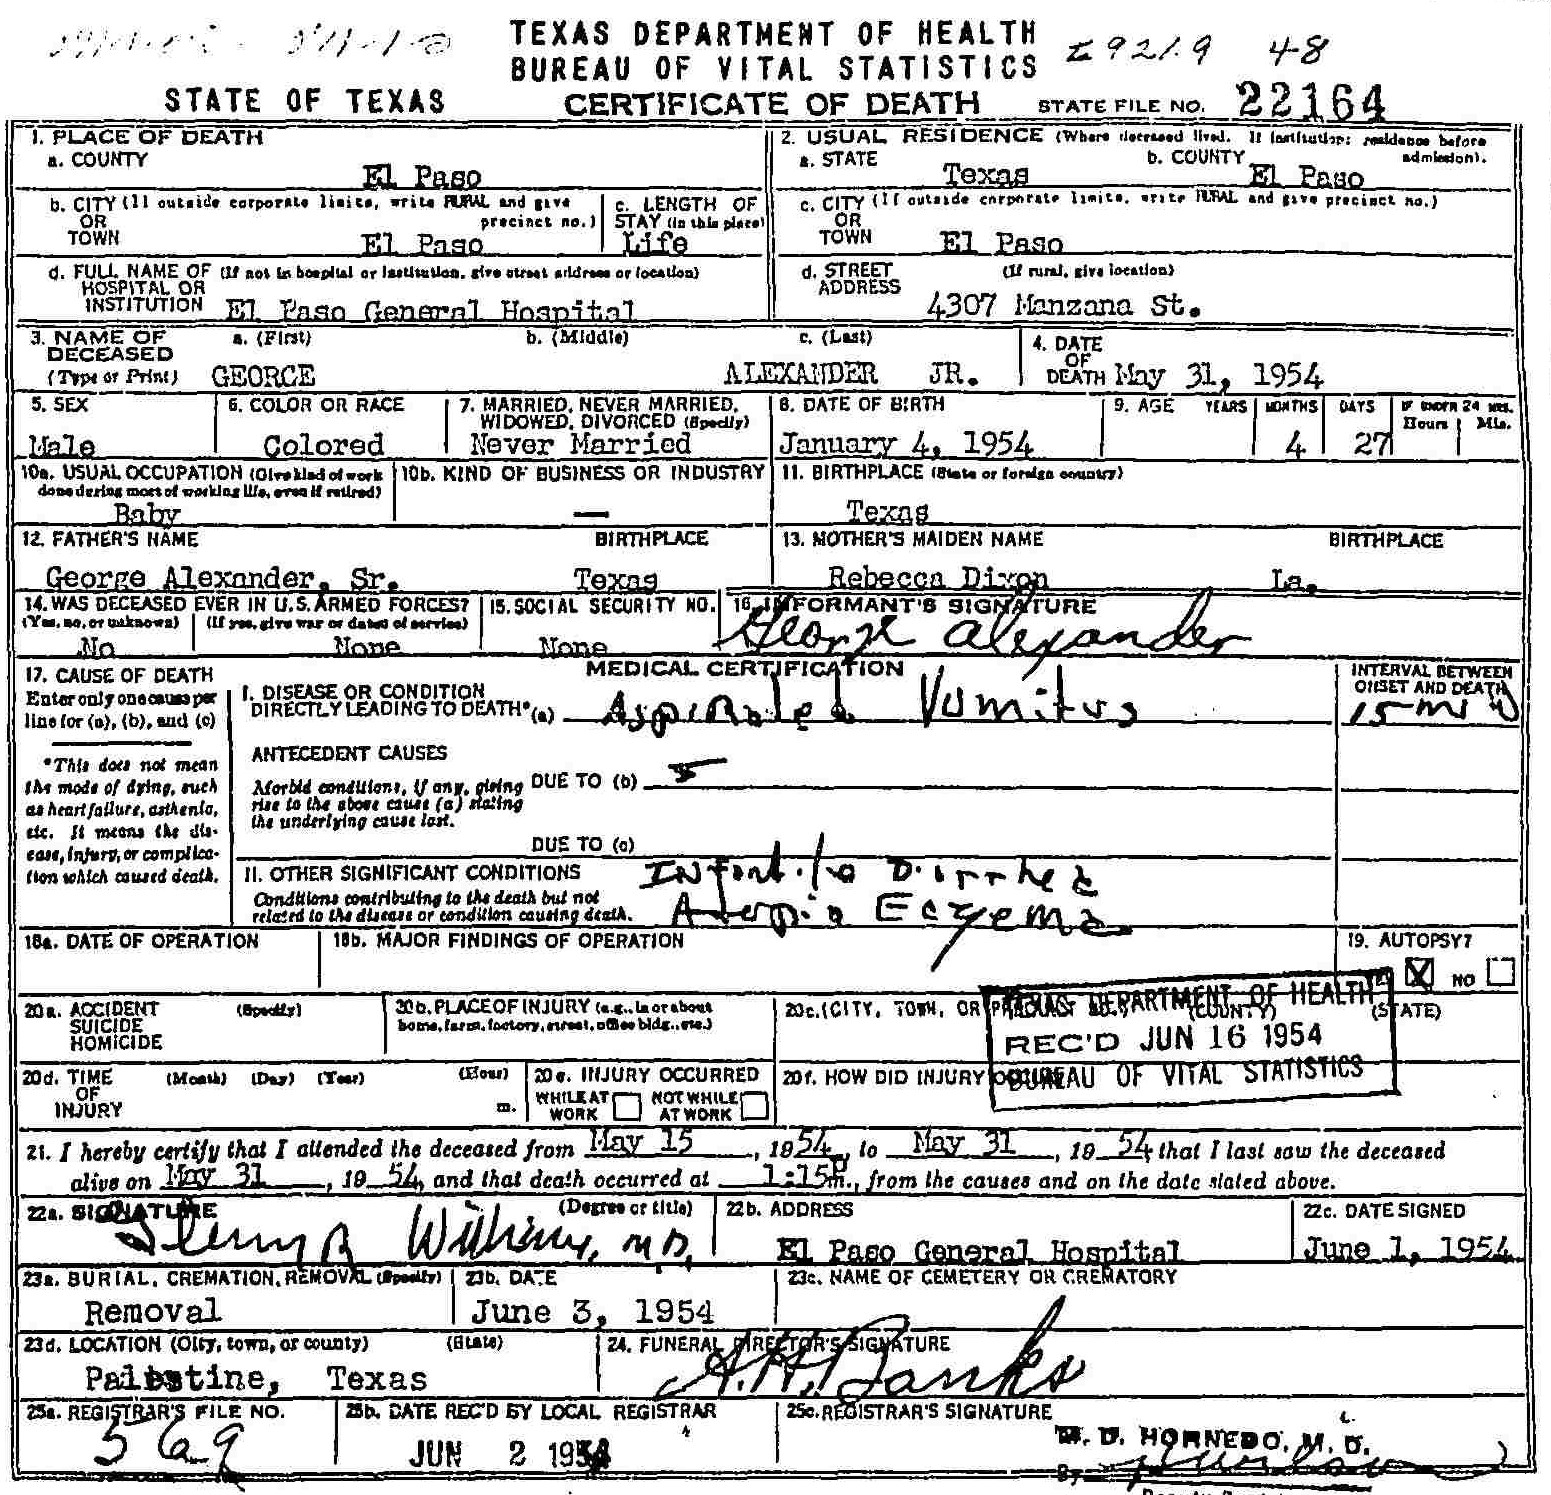 TEXAS DEPARTMENT OF HEALTH
BUREAU OF VITAL STATISTICS
9219 48
STATE OF TEXAS CERTIFICATE OF DEATH STATE FILE NO. 22164
1. PLACE OF DEATH
a. COUNTY
El Paso
2. USUAL RESIDENCE (Where deceased lived. If institution: residence before admission).
a. STATE Texas b. COUNTY El Paso
b. CITY (If outside corporate limits, write RURAL and give precinct no.)
OR
TOWN El Paso
c. LENGTH OF STAY (in this place)
Life
c. CITY (If outside corporate limits, write RURAL and give precinct no.)
OR
TOWN El Paso
d. FULL NAME OF (If not in hospital or institution, give street address or location)
HOSPITAL OR
INSTITUTION El Paso General Hospital
d. STREET ADDRESS (If rural, give location)
4307 Manzana St.
3. NAME OF DECEASED (Type or Print)
a. (First) b. (Middle) c. (Last)
GEORGE ALEXANDER JR.
4. DATE OF DEATH May 31, 1954
5. SEX
Male
6. COLOR OR RACE
Colored
7. MARRIED, NEVER MARRIED, WIDOWED, DIVORCED (Specify)
Never Married
8. DATE OF BIRTH
January 4, 1954
9. AGE YEARS MONTHS DAYS IF UNDER 24 HRS. Hours Min.
4 27
10a. USUAL OCCUPATION (Give kind of work done during most of working life, even if retired)
Baby
10b. KIND OF BUSINESS OR INDUSTRY
—
11. BIRTHPLACE (State or foreign country)
Texas
12. FATHER'S NAME BIRTHPLACE
George Alexander, Sr. Texas
13. MOTHER'S MAIDEN NAME BIRTHPLACE
Rebecca Dixon La.
14. WAS DECEASED EVER IN U.S. ARMED FORCES?
(Yes, no, or unknown) (If yes, give war or dates of service)
No None
15. SOCIAL SECURITY NO.
None
16. INFORMANT'S SIGNATURE
George Alexander
17. CAUSE OF DEATH
Enter only one cause per line for (a), (b), and (c)
*This does not mean the mode of dying, such as heart failure, asthenia, etc. It means the disease, injury, or complication which caused death.
MEDICAL CERTIFICATION
INTERVAL BETWEEN ONSET AND DEATH
I. DISEASE OR CONDITION
DIRECTLY LEADING TO DEATH* (a) Aspirated Vomitus 15 min
ANTECEDENT CAUSES
Morbid conditions, if any, giving rise to the above cause (a) stating the underlying cause last.
DUE TO (b)
DUE TO (c)
II. OTHER SIGNIFICANT CONDITIONS
Conditions contributing to the death but not related to the disease or condition causing death.
Infantile Diarrhea
Atopic Eczema
18a. DATE OF OPERATION
18b. MAJOR FINDINGS OF OPERATION
19. AUTOPSY?
X NO
20a. ACCIDENT (Specify)
SUICIDE
HOMICIDE
20b. PLACE OF INJURY (e.g., in or about home, farm, factory, street, office bldg., etc.)
20c. (CITY, TOWN, OR PRECINCT NO.) (COUNTY) (STATE)
TEXAS DEPARTMENT OF HEALTH
REC'D JUN 16 1954
BUREAU OF VITAL STATISTICS
20d. TIME OF INJURY (Month) (Day) (Year) (Hour) m.
20e. INJURY OCCURRED
WHILE AT WORK NOT WHILE AT WORK
20f. HOW DID INJURY OCCUR?
21. I hereby certify that I attended the deceased from May 15, 1954, to May 31, 1954 that I last saw the deceased
alive on May 31, 1954, and that death occurred at 1:15P m., from the causes and on the date stated above.
22a. SIGNATURE (Degree or title)
Williams, M.D.
22b. ADDRESS
El Paso General Hospital
22c. DATE SIGNED
June 1, 1954
23a. BURIAL, CREMATION, REMOVAL (Specify)
Removal
23b. DATE
June 3, 1954
23c. NAME OF CEMETERY OR CREMATORY
23d. LOCATION (City, town, or county) (State)
Palestine, Texas
24. FUNERAL DIRECTOR'S SIGNATURE
A.H. Banks
25a. REGISTRAR'S FILE NO.
569
25b. DATE REC'D BY LOCAL REGISTRAR
JUN 2 1954
25c. REGISTRAR'S SIGNATURE
M. D. HORNEDO, M. D.
By